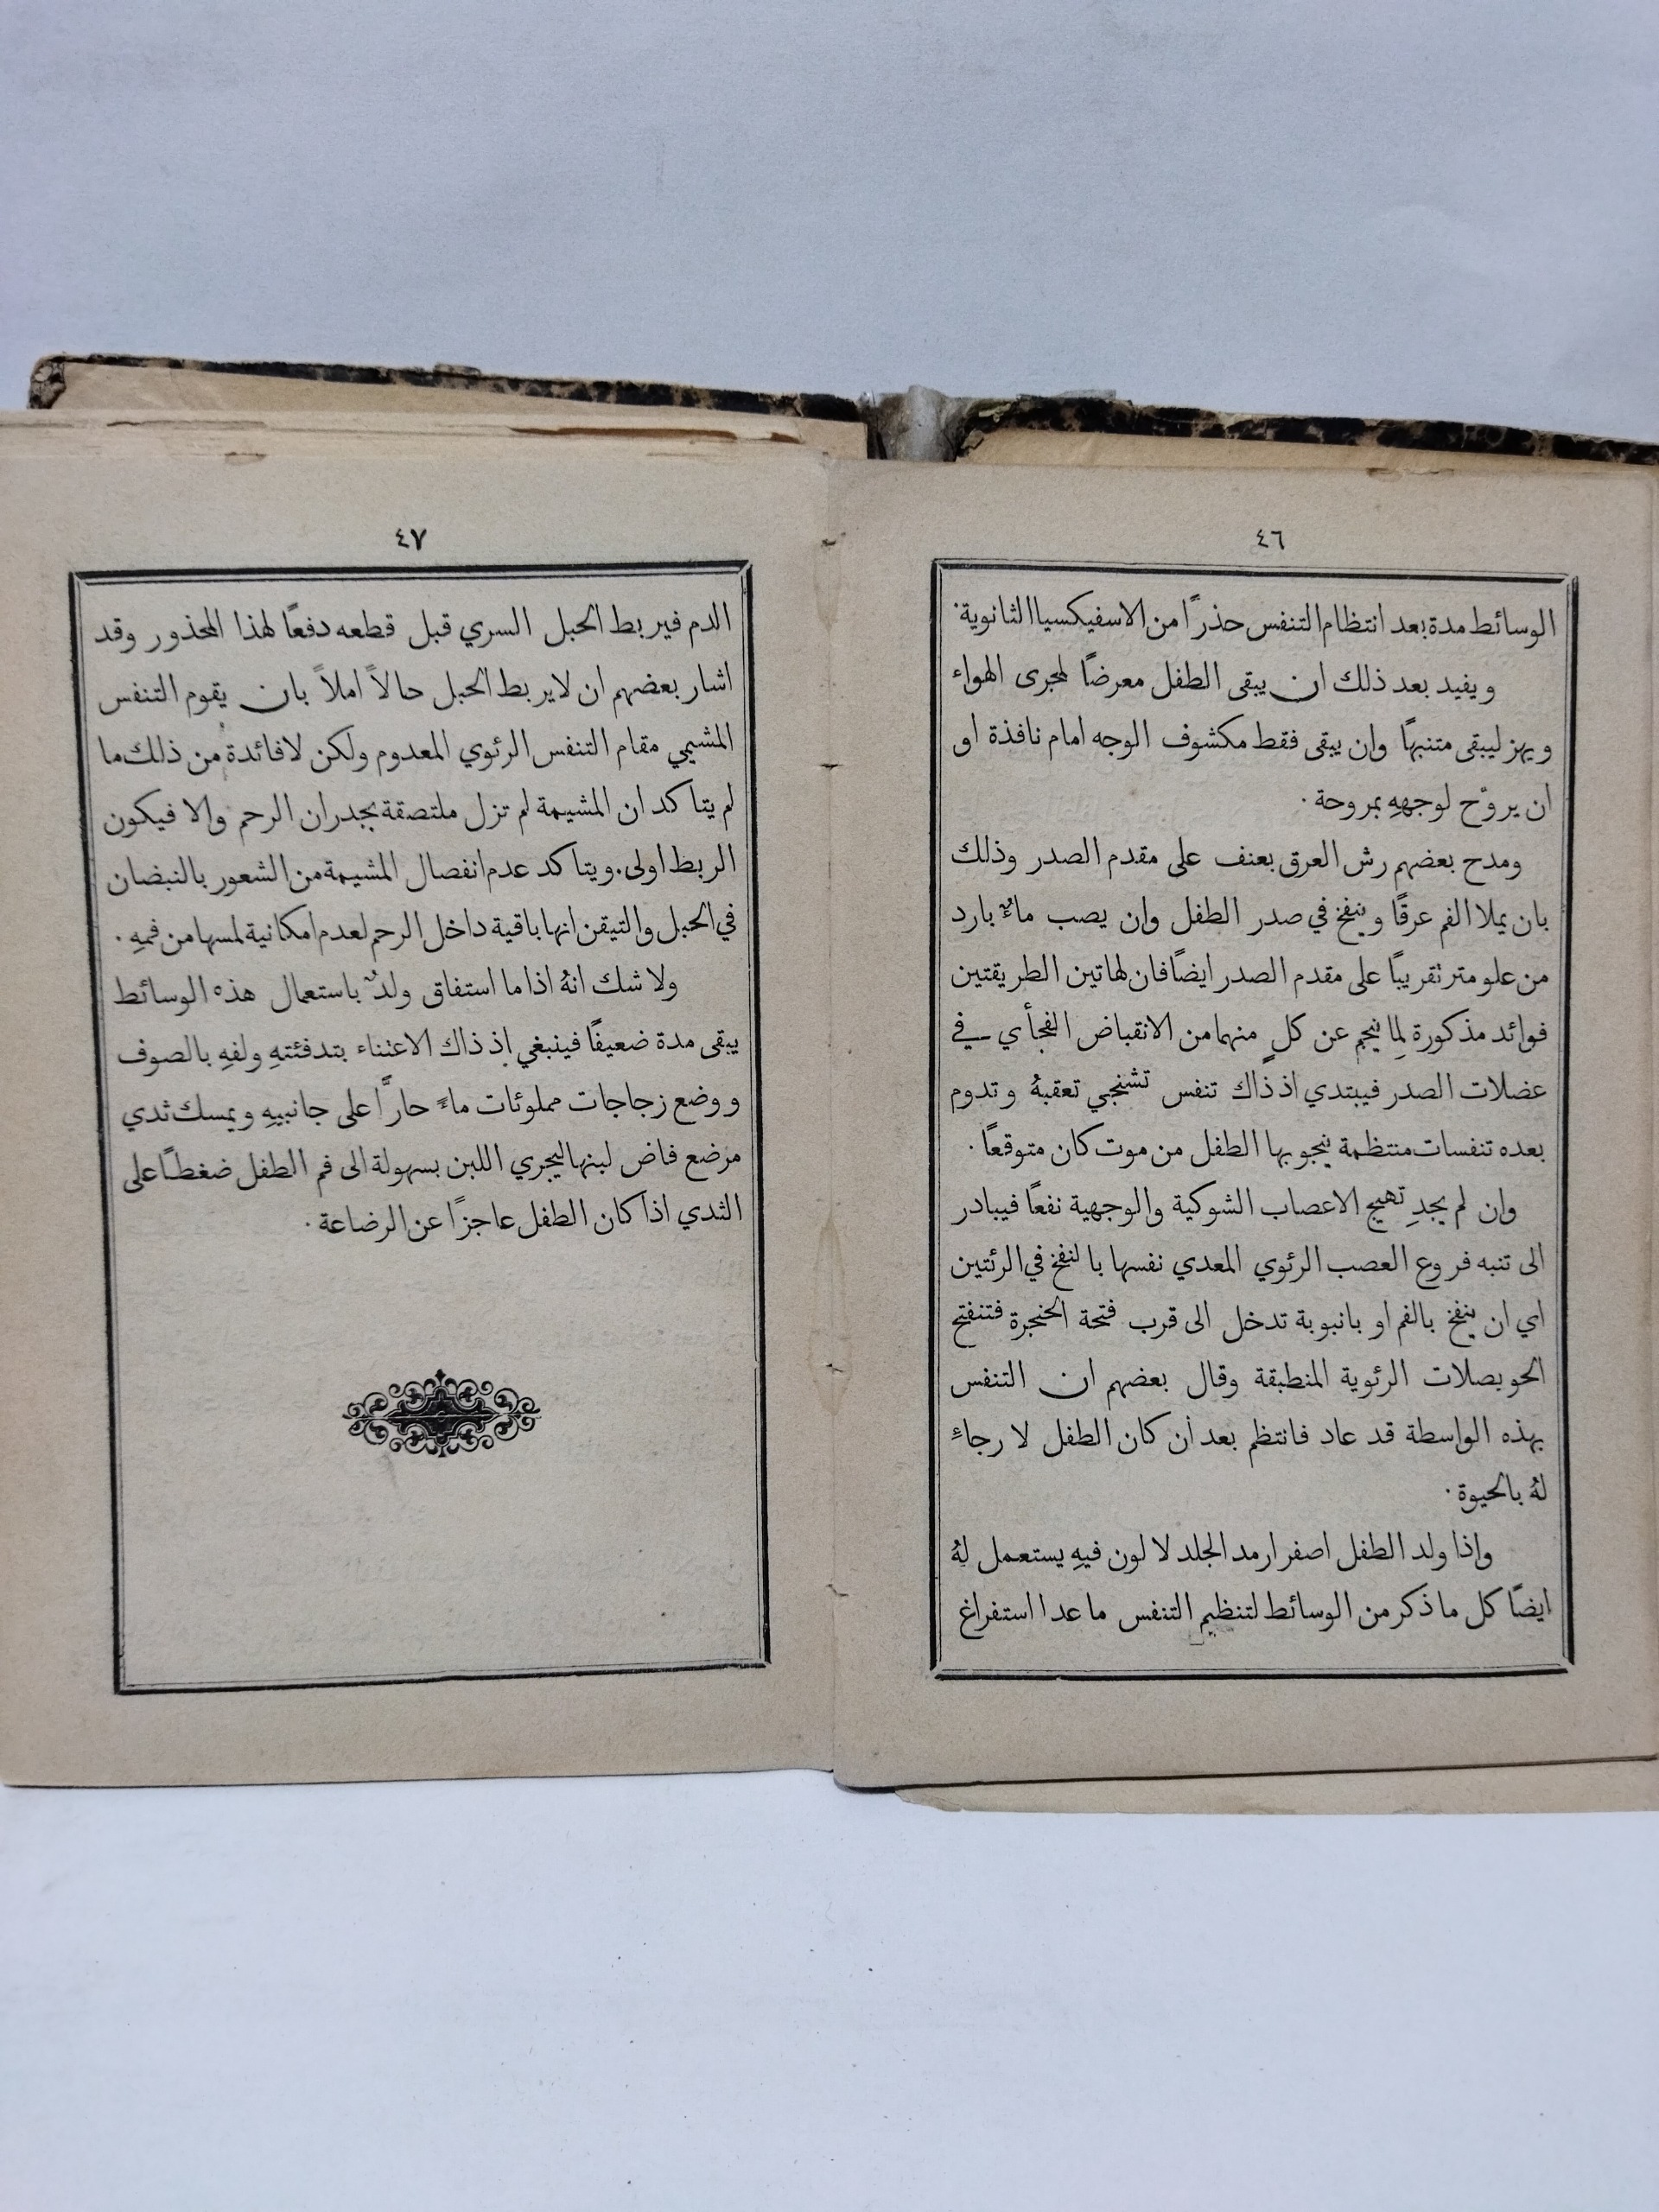 ٤٦
الوسائط مدة بعد انتظام التنفس حذرًا من الاسفيكسيا الثانوية ·
ويفيد بعد ذلك ان يبقى الطفل معرضًا لمجرى الهواء
ويهز ليبقى متنبهًا وان يبقى فقط مكشوف الوجه امام نافذة او
ان يروّح لوجههِ بمروحة ·
ومدح بعضهم رش العرق بعنف على مقدم الصدر وذلك
بان يملا الفم عرقًا وينفخ في صدر الطفل وان يصب ماءٌ بارد
من علو متر تقريبًا على مقدم الصدر ايضًا فان لهاتين الطريقتين
فوائد مذكورة لِما ينجم عن كلٍ منهما من الانقباض الفجأي في
عضلات الصدر فيبتدي اذ ذاك تنفس تشنجي تعقبهُ وتدوم
بعده تنفسات منتظمة ينجو بها الطفل من موت كان متوقعًا ·
وان لم يجدِ تهييج الاعصاب الشوكية والوجهية نفعًا فيبادر
الى تنبه فروع العصب الرئوي المعدي نفسها بالنفخ في الرئتين
اي ان ينفخ بالفم او بانبوبة تدخل الى قرب فتحة الحنجرة فتنفتح
الحويصلات الرئوية المنطبقة وقال بعضهم ان التنفس
بهذه الواسطة قد عاد فانتظم بعد أن كان الطفل لا رجاءً
لهُ بالحيوة ·
واذا ولد الطفل اصفر ارمد الجلد لا لون فيهِ يستعمل لهُ
ايضًا كل ما ذكر من الوسائط لتنظيم التنفس ما عدا استفراغ
٤٧
الدم فيربط الحبل السري قبل قطعه دفعًا لهذا المحذور وقد
اشار بعضهم ان لا يربط الحبل حالاً املاً بان يقوم التنفس
المشيمي مقام التنفس الرئوي المعدوم ولكن لا فائدة من ذلك ما
لم يتاكد ان المشيمة لم تزل ملتصقة بجدران الرحم والا فيكون
الربط اولى . ويتاكد عدم انفصال المشيمة من الشعور بالنبضان
في الحبل والتيقن انها باقية داخل الرحم لعدم امكانية لمسها من فمهِ ·
ولا شك انهُ اذا ما استفاق ولدٌ باستعمال هذه الوسائط
يبقى مدة ضعيفًا فينبغي إذ ذاك الاعتناء بتدفئتهِ ولفهِ بالصوف
ووضع زجاجات مملوئات ماءً حارًّا على جانبيهِ ويمسك ثدي
مرضع فاض لبنها ليجري اللبن بسهولة الى فم الطفل ضغطًا على
الثدي اذا كان الطفل عاجزًا عن الرضاعة ·